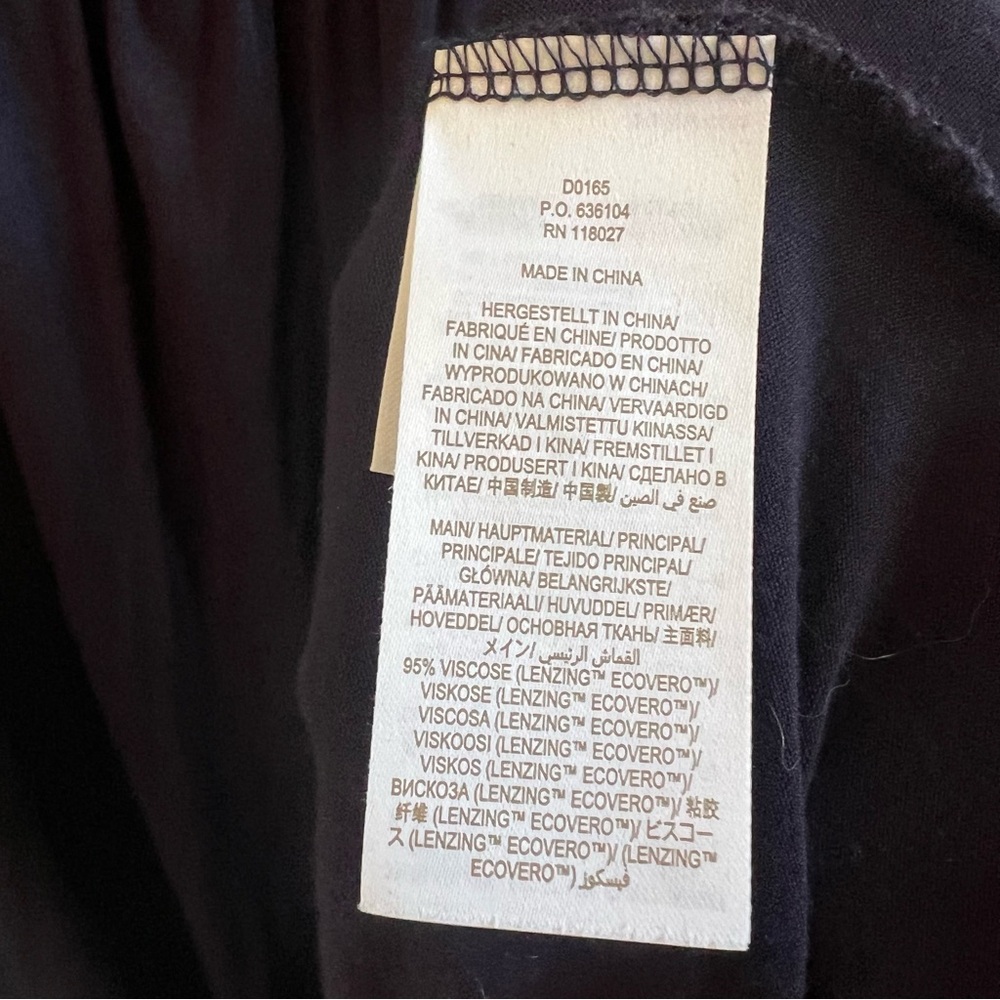 D0165
P.O. 636104
RN 118027
MADE IN CHINA
HERGESTELLT IN CHINA/
FABRIQUÉ EN CHINE/ PRODOTTO
IN CINA/ FABRICADO EN CHINA/
WYPRODUKOWANO W CHINACH/
FABRICADO NA CHINA/ VERVAARDIGD
IN CHINA/ VALMISTETTU KIINASSA/
TILLVERKAD I KINA/ FREMSTILLET I
KINA/ PRODUSERT I KINA/ СДЕЛАНО В
КИТАЕ/ 中国制造/ 中国製/ صنع في الصين
MAIN/ HAUPTMATERIAL/ PRINCIPAL/
PRINCIPALE/ TEJIDO PRINCIPAL/
GŁÓWNA/ BELANGRIJKSTE/
PÄÄMATERIAALI/ HUVUDDEL/ PRIMÆR/
HOVEDDEL/ ОСНОВНАЯ ТКАНЬ/ 主面料/
メイン/ القماش الرئيسي
95% VISCOSE (LENZING™ ECOVERO™)/
VISKOSE (LENZING™ ECOVERO™)/
VISCOSA (LENZING™ ECOVERO™)/
VISKOOSI (LENZING™ ECOVERO™)/
VISKOS (LENZING™ ECOVERO™)/
ВИСКОЗА (LENZING™ ECOVERO™)/ 粘胶
纤维 (LENZING™ ECOVERO™)/ ビスコー
ス (LENZING™ ECOVERO™)/ (LENZING™
ECOVERO™) فيسكوز